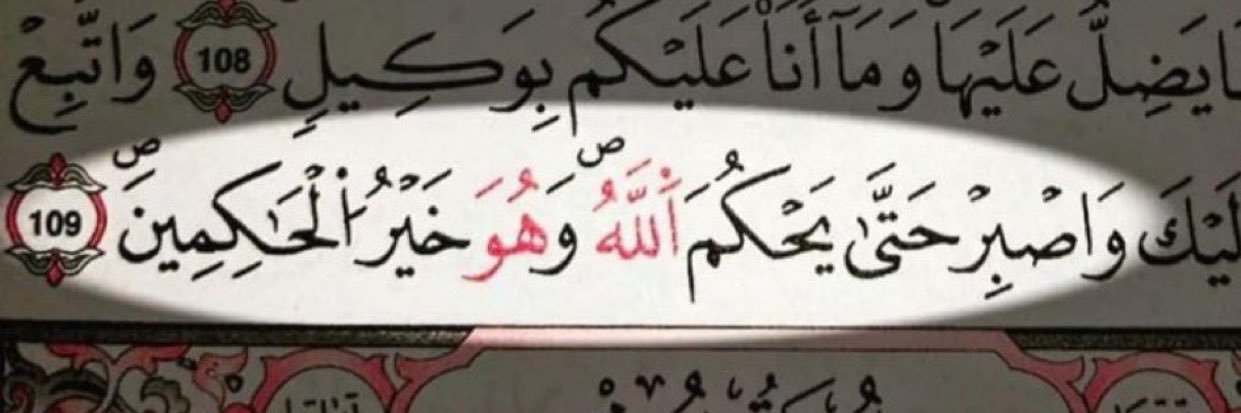 يَضِلُّ عَلَيْهَا وَمَآ أَنَا۠ عَلَيْكُم بِوَكِيلٍ 108 وَاتَّبِعْ
وَاصْبِرْ حَتَّىٰ يَحْكُمَ ٱللَّهُ ۖ وَهُوَ خَيْرُ ٱلْحَاكِمِينَ ۖ 109